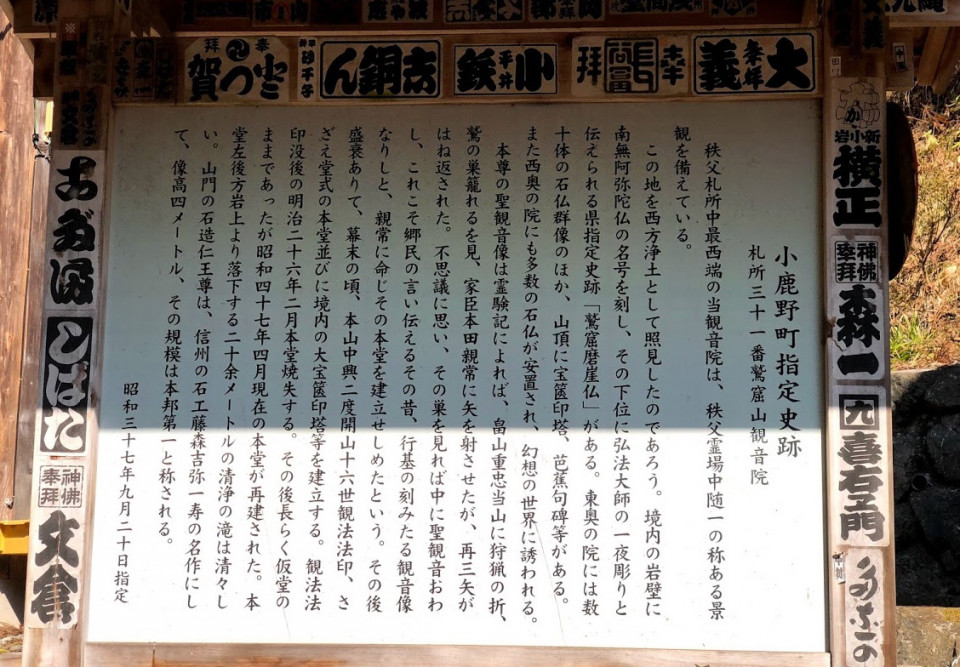 小鹿野町指定史跡
札所三十一番鷲窟山観音院
秩父札所中最西端の当観音院は、秩父霊場中随一の称ある景
観を備えている。
この地を西方浄土として照見したのであろう。境内の岩壁に
南無阿弥陀仏の名号を刻し、その下位に弘法大師の一夜彫りと
伝えられる県指定史跡「鷲窟磨崖仏」がある。東奥の院には数
十体の石仏群像のほか、山頂に宝篋印塔、芭蕉句碑等がある。
また西奥の院にも多数の石仏が安置され、幻想の世界に誘われる。
本尊の聖観音像は霊験記によれば、畠山重忠当山に狩猟の折、
鷲の巣籠れるを見、家臣本田親常に矢を射させたが、再三矢が
はね返された。不思議に思い、その巣を見れば中に聖観音おわ
し、これこそ郷民の言い伝えるその昔、行基の刻みたる観音像
なりしと、親常に命じその本堂を建立せしめたという。その後
盛衰ありて、幕末の頃、本山中興二度開山十六世観法法印、さ
ざえ堂式の本堂並びに境内の大宝篋印塔等を建立する。観法法
印没後の明治二十六年二月本堂焼失する。その後長らく仮堂の
ままであったが昭和四十七年四月現在の本堂が再建された。本
堂左後方岩上より落下する二十余メートルの清浄の滝は清々し
い。山門の石造仁王尊は、信州の石工藤森吉弥一寿の名作にし
て、像高四メートル、その規模は本邦第一と称される。
昭和三十七年九月二十日指定
大義
小鉄
平井
吉銅ん
拝
賀
新小岩
横正
神佛
奉拝
森一
喜右エ門
しばた
神佛
奉拝
文倉